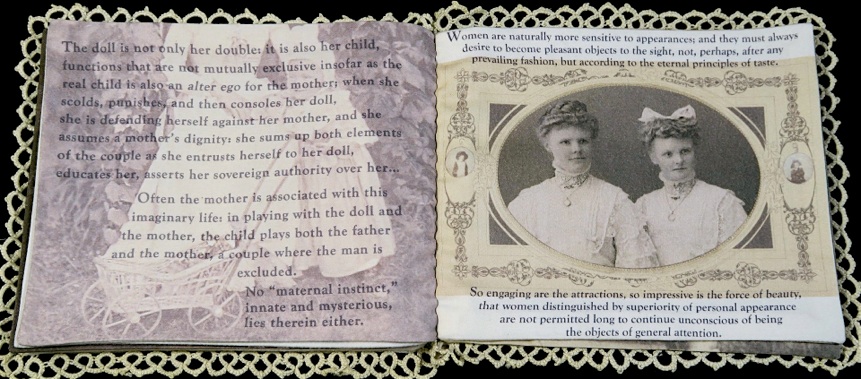 The doll is not only her double: it is also her child,
functions that are not mutually exclusive insofar as the
real child is also an alter ego for the mother; when she
scolds, punishes, and then consoles her doll,
she is defending herself against her mother, and she
assumes a mother's dignity: she sums up both elements
of the couple as she entrusts herself to her doll,
educates her, asserts her sovereign authority over her...
Often the mother is associated with this
imaginary life: in playing with the doll and
the mother, the child plays both the father
and the mother, a couple where the man is
excluded.
No "maternal instinct,"
innate and mysterious,
lies therein either.
Women are naturally more sensitive to appearances; and they must always
desire to become pleasant objects to the sight, not, perhaps, after any
prevailing fashion, but according to the eternal principles of taste.
So engaging are the attractions, so impressive is the force of beauty,
that women distinguished by superiority of personal appearance
are not permitted long to continue unconscious of being
the objects of general attention.